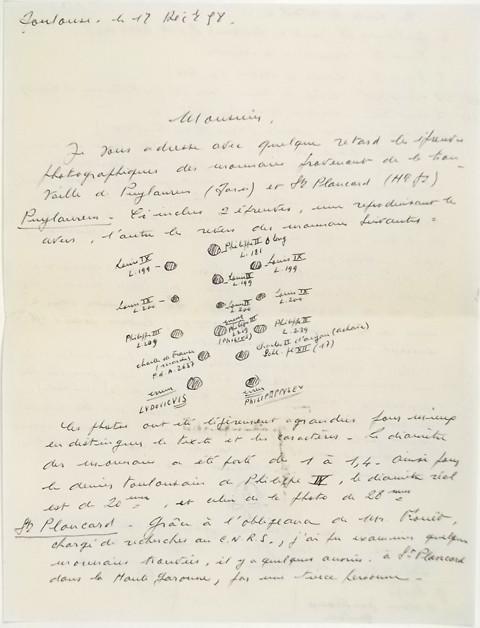 Toulouse. le 17 Déc 58.
Monsieur,
Je vous adresse avec quelque retard les épreuves
photographiques des monnaies provenant de la trou-
vaille de Puylaurens (Tarn) et St Plancard (Hte Gne)
Puylaurens - Ci-inclus 2 épreuves, une reproduisant les
avers, l'autre les revers des monnaies suivantes =
Philippe II
L. 181
Louis IX
L. 199
Louis IX
L. 199
Louis IX
L. 199
Louis IX
L. 200
Louis IX
L. 200
Louis IX
L. 200
Philippe III
L. 209
Philippe III
Philippe III
L. 229
Charles de France
P.d.A. 2627
Charles II d'Anjou (Achaïe)
XII (17)
LVDOVICVS
Les photos ont été légèrement agrandies pour mieux
en distinguer le texte et les caractères. Le diamètre
des monnaies a été porté de 1 à 1,4. Ainsi pour
le denier toulousain de Philippe IV, le diamètre réel
est de 20 mm, et celui de la photo de 28 mm
St Plancard - Grâce à l'obligeance de Mr.
chargé de recherches au C.N.R.S., j'ai pu examiner quelques
monnaies trouvées, il y a quelques années à St Plancard
dans la Haute Garonne, par une tierce personne -